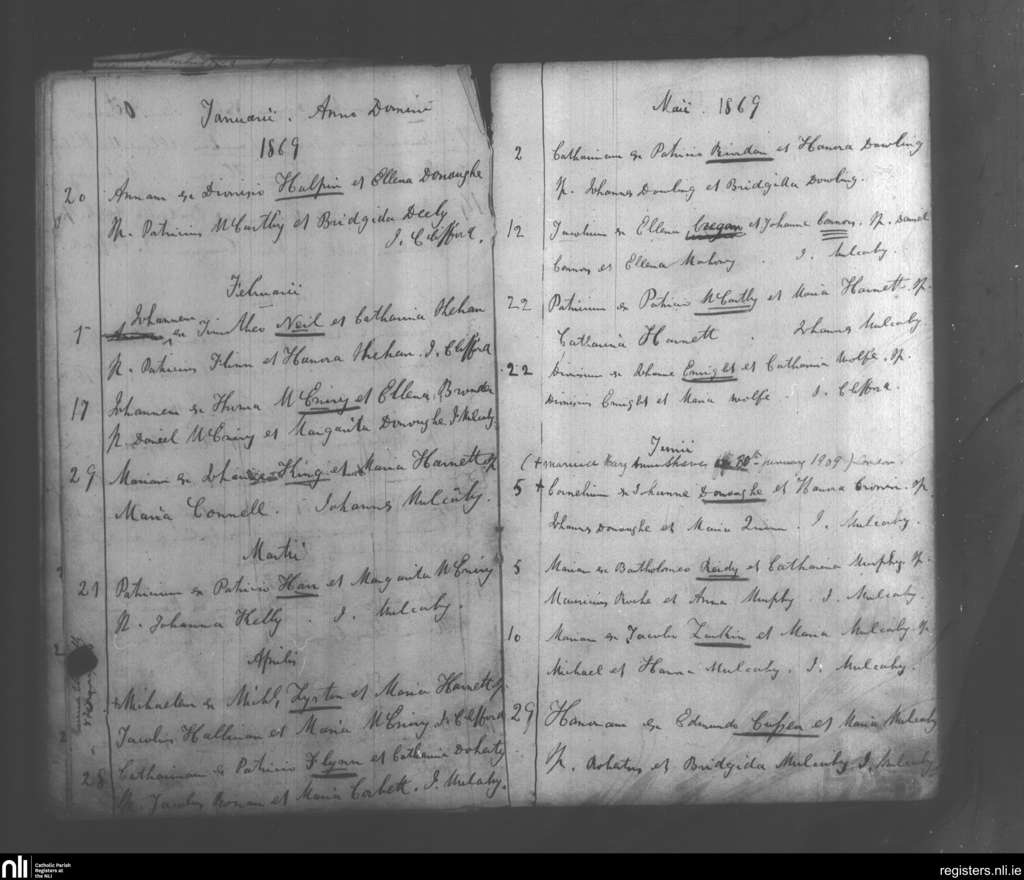 Januarii . Anno Domini
1869
20 Annam ex Dionisio Halpin et Ellena Donoughe
Sp. Patricius McCarthy et Bridgida Deely
J. Clifford.
Februarii
Johannem
5 ex Timotheo Neil et Catharina Shehan
Sp. Patricius Flinn et Hanora Shehan. J. Clifford
17 Johannem ex Thoma McEniry et Ellena
Sp. Daniel McEniry et Margarita Donoughe. J. Mulcahy.
29 Mariam ex King et Maria Harnett Sp
Maria Connell. Johannes Mulcahy.
Martii
21 Patricium ex Patricio Harr et Margarita McEniry
Sp. Johanna Kelly . J. Mulcahy.
Aprilis
Michaelem ex Michl, et Maria Harnett Sp.
Jacobus Hallinan et Maria McEniry. J. Clifford
28 Catharinam ex Patricio Flynn et Catharina Doherty
Sp. Jacobus Ronan et Maria Corbett. J. Mulcahy.
Maii . 1869
2 Catharinam ex Patricio Riordan et Honora Dowling
Sp. Johannes Dowling et Bridgidda Dowling.
12 Jacobum ex Ellena Cregan et Johanne Connors, Sp. Daniel
Connors et Ellena Mahony . J. Mulcahy.
22 Patricium ex Patricio McCarthy et Maria Harnett. Sp.
Catharina Harnett . Johannes Mulcahy.
22 Dionisium ex Johanne Enright et Catharina Wolfe. Sp.
Dionisius Enright et Maria Wolfe . J. Clifford.
Junii
(+ married Mary Anne January 1909) London.
5 + Cornelium ex Johanne Donoughe et Hanora Cronin. Sp.
Johannes Donoughe et Maria Quinn. J. Mulcahy.
5 Mariam ex Bartholomeo Reidy et Catharina Murphy. Sp.
Mauricius Roche et Anna Murphy . J. Mulcahy.
10 Mariam ex Jacobo Larkin et Maria Mulcahy. Sp.
Michael et Hanna Mulcahy. J. Mulcahy.
29 Honoram ex Edmundo Cussen et Maria Mulcahy
Sp. Robertus et Bridgida Mulcahy. J. Mulcahy
nli Catholic Parish
Registers at
the NLI
registers.nli.ie